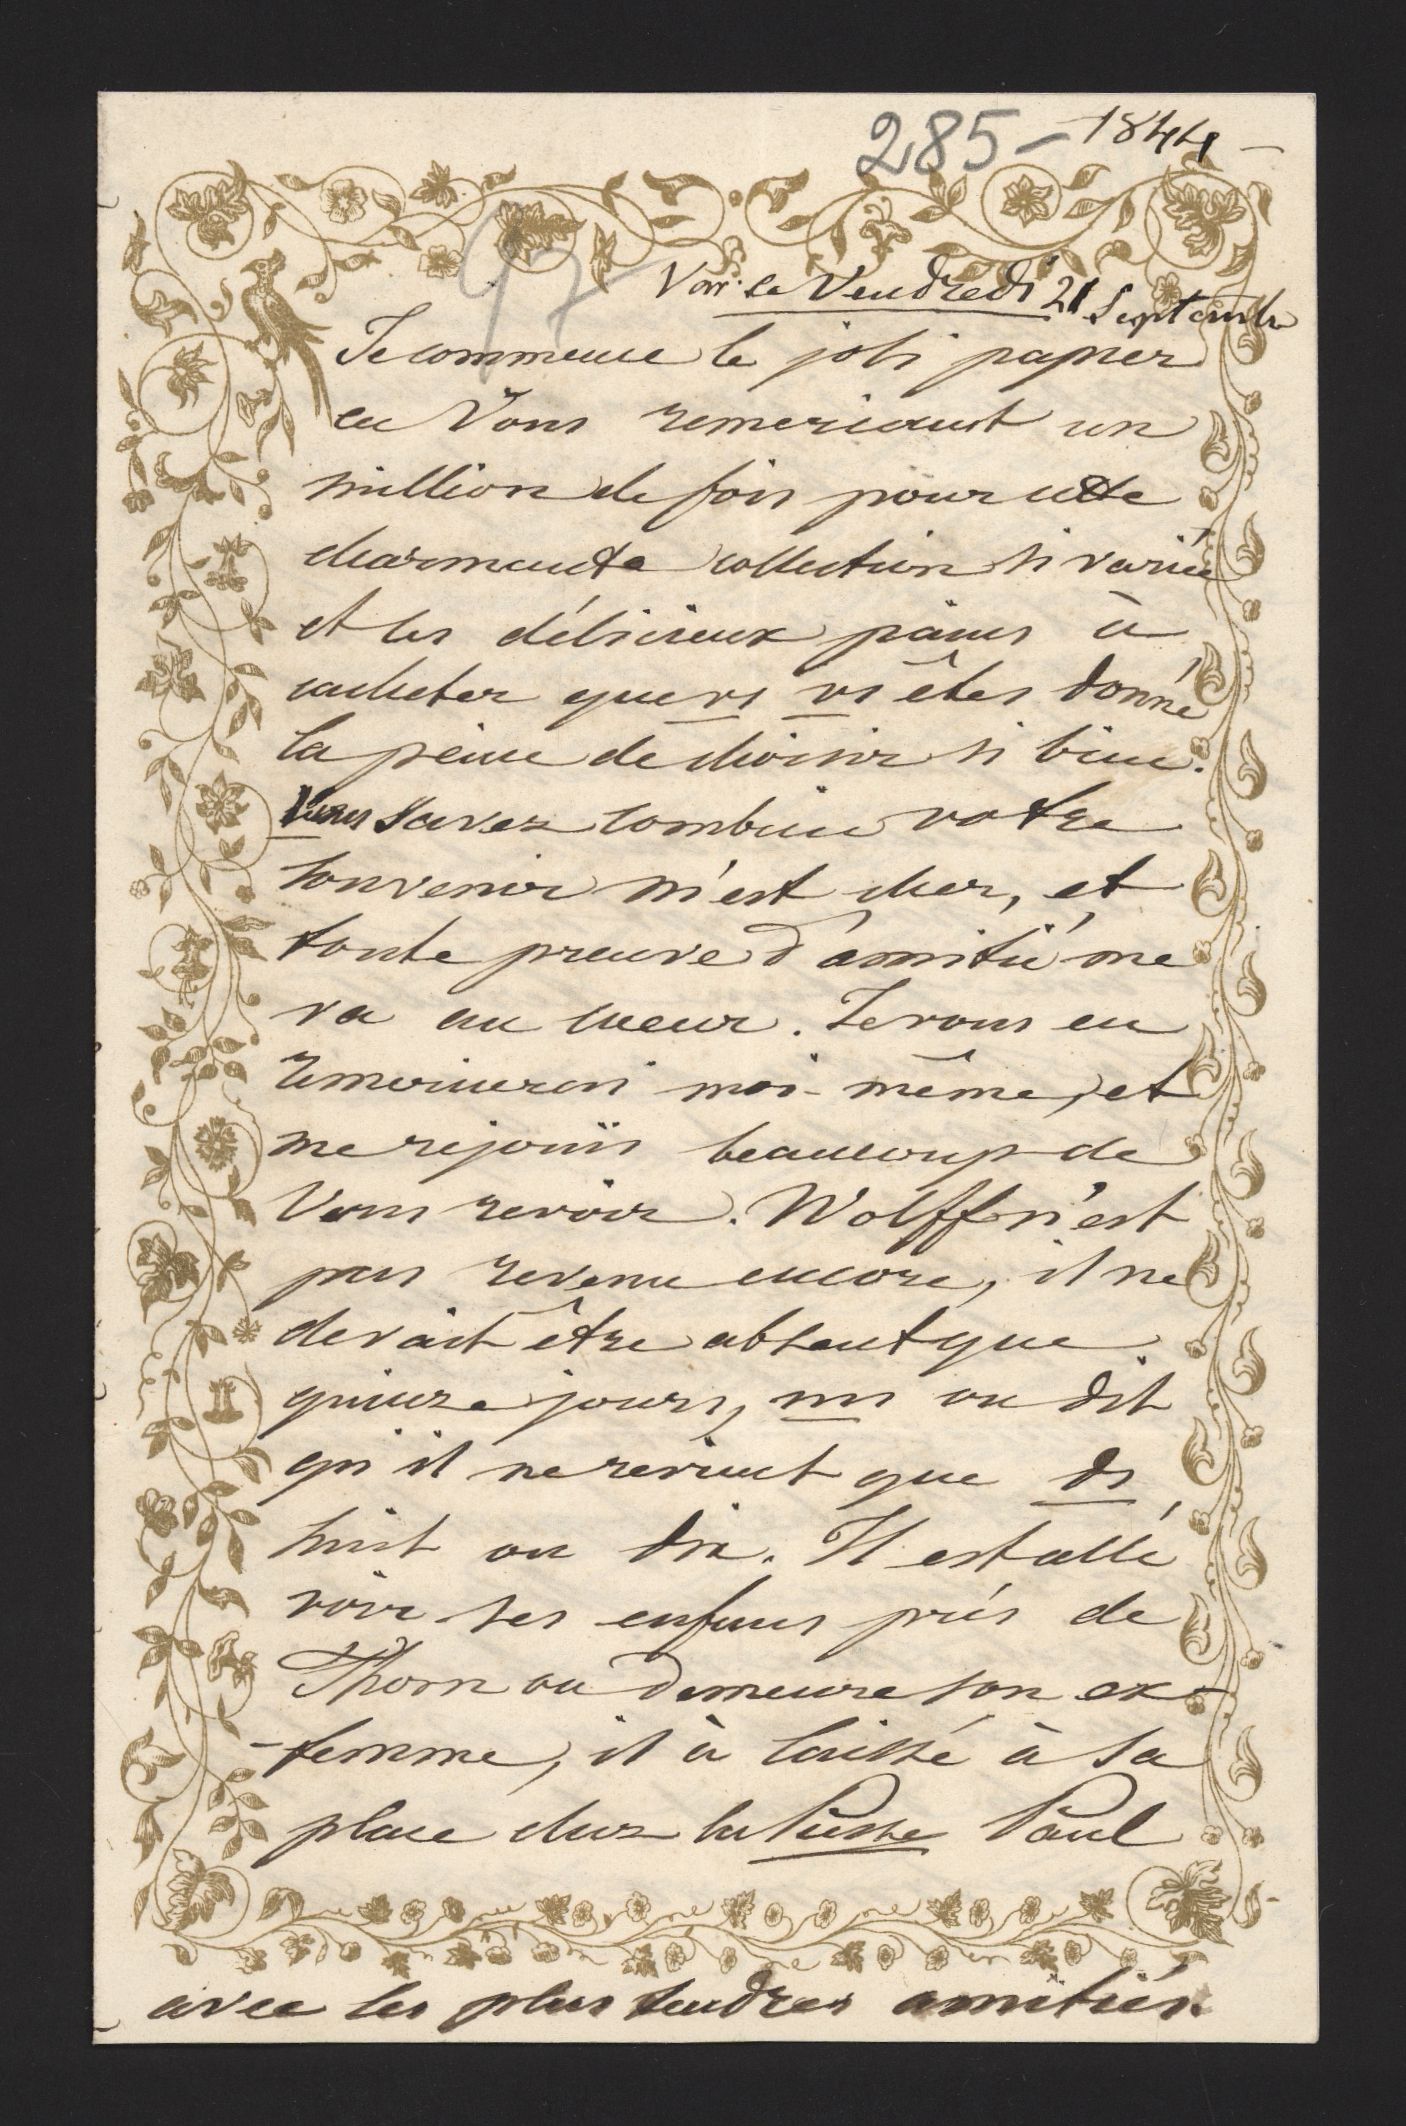 285 - 1844 -
97
Vendredi 21 Septembre
Je commence le joli papier
en Vous remerciant un
million de fois pour cette
charmante collection si variée
et les délicieux pains à
cacheter que vs vs êtes donné
la peine de choisir si bien.
Vous savez combien votre
souvenir m'est cher, et
toute preuve d'amitié me
va au coeur. Je vous en
remercierai moi-même, et
me réjouis beaucoup de
Vous revoir. Wolff n'est
pas revenu encore, il ne
devait être absent que
quinze jours, on dit
qu'il ne revient que ds
huit ou dix. Il est allé
voir ses enfans près de
Thorn ou demeure son ex-
-femme, il à laissé à sa
place chez la Psse Paul
avec les plus tendres amitiés